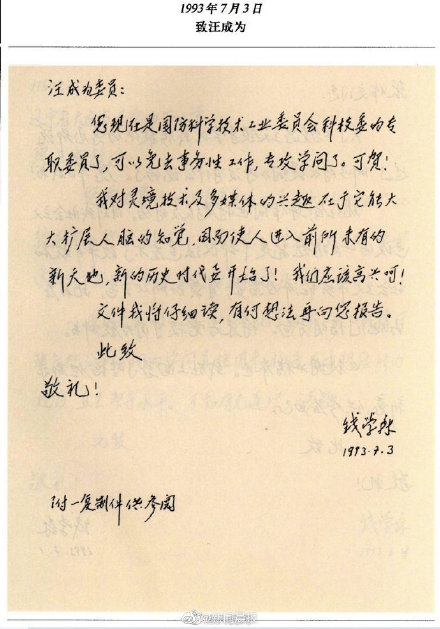 1993年7月3日
致汪成为
汪成为委员：
您现在是国防科学技术工业委员会科技委的专
职委员了，可以免去事务性工作，专攻学问了。可贺！
我对灵境技术及多媒体的兴趣在于它能大
大扩展人脑的知觉，因而使人进入前所未有的
新天地，新的历史时代要开始了！我们应该高兴呵！
文件我将仔细读，有何想法再向您报告。
此致
敬礼！
钱学森
1993.7.3
附一复制件供参阅